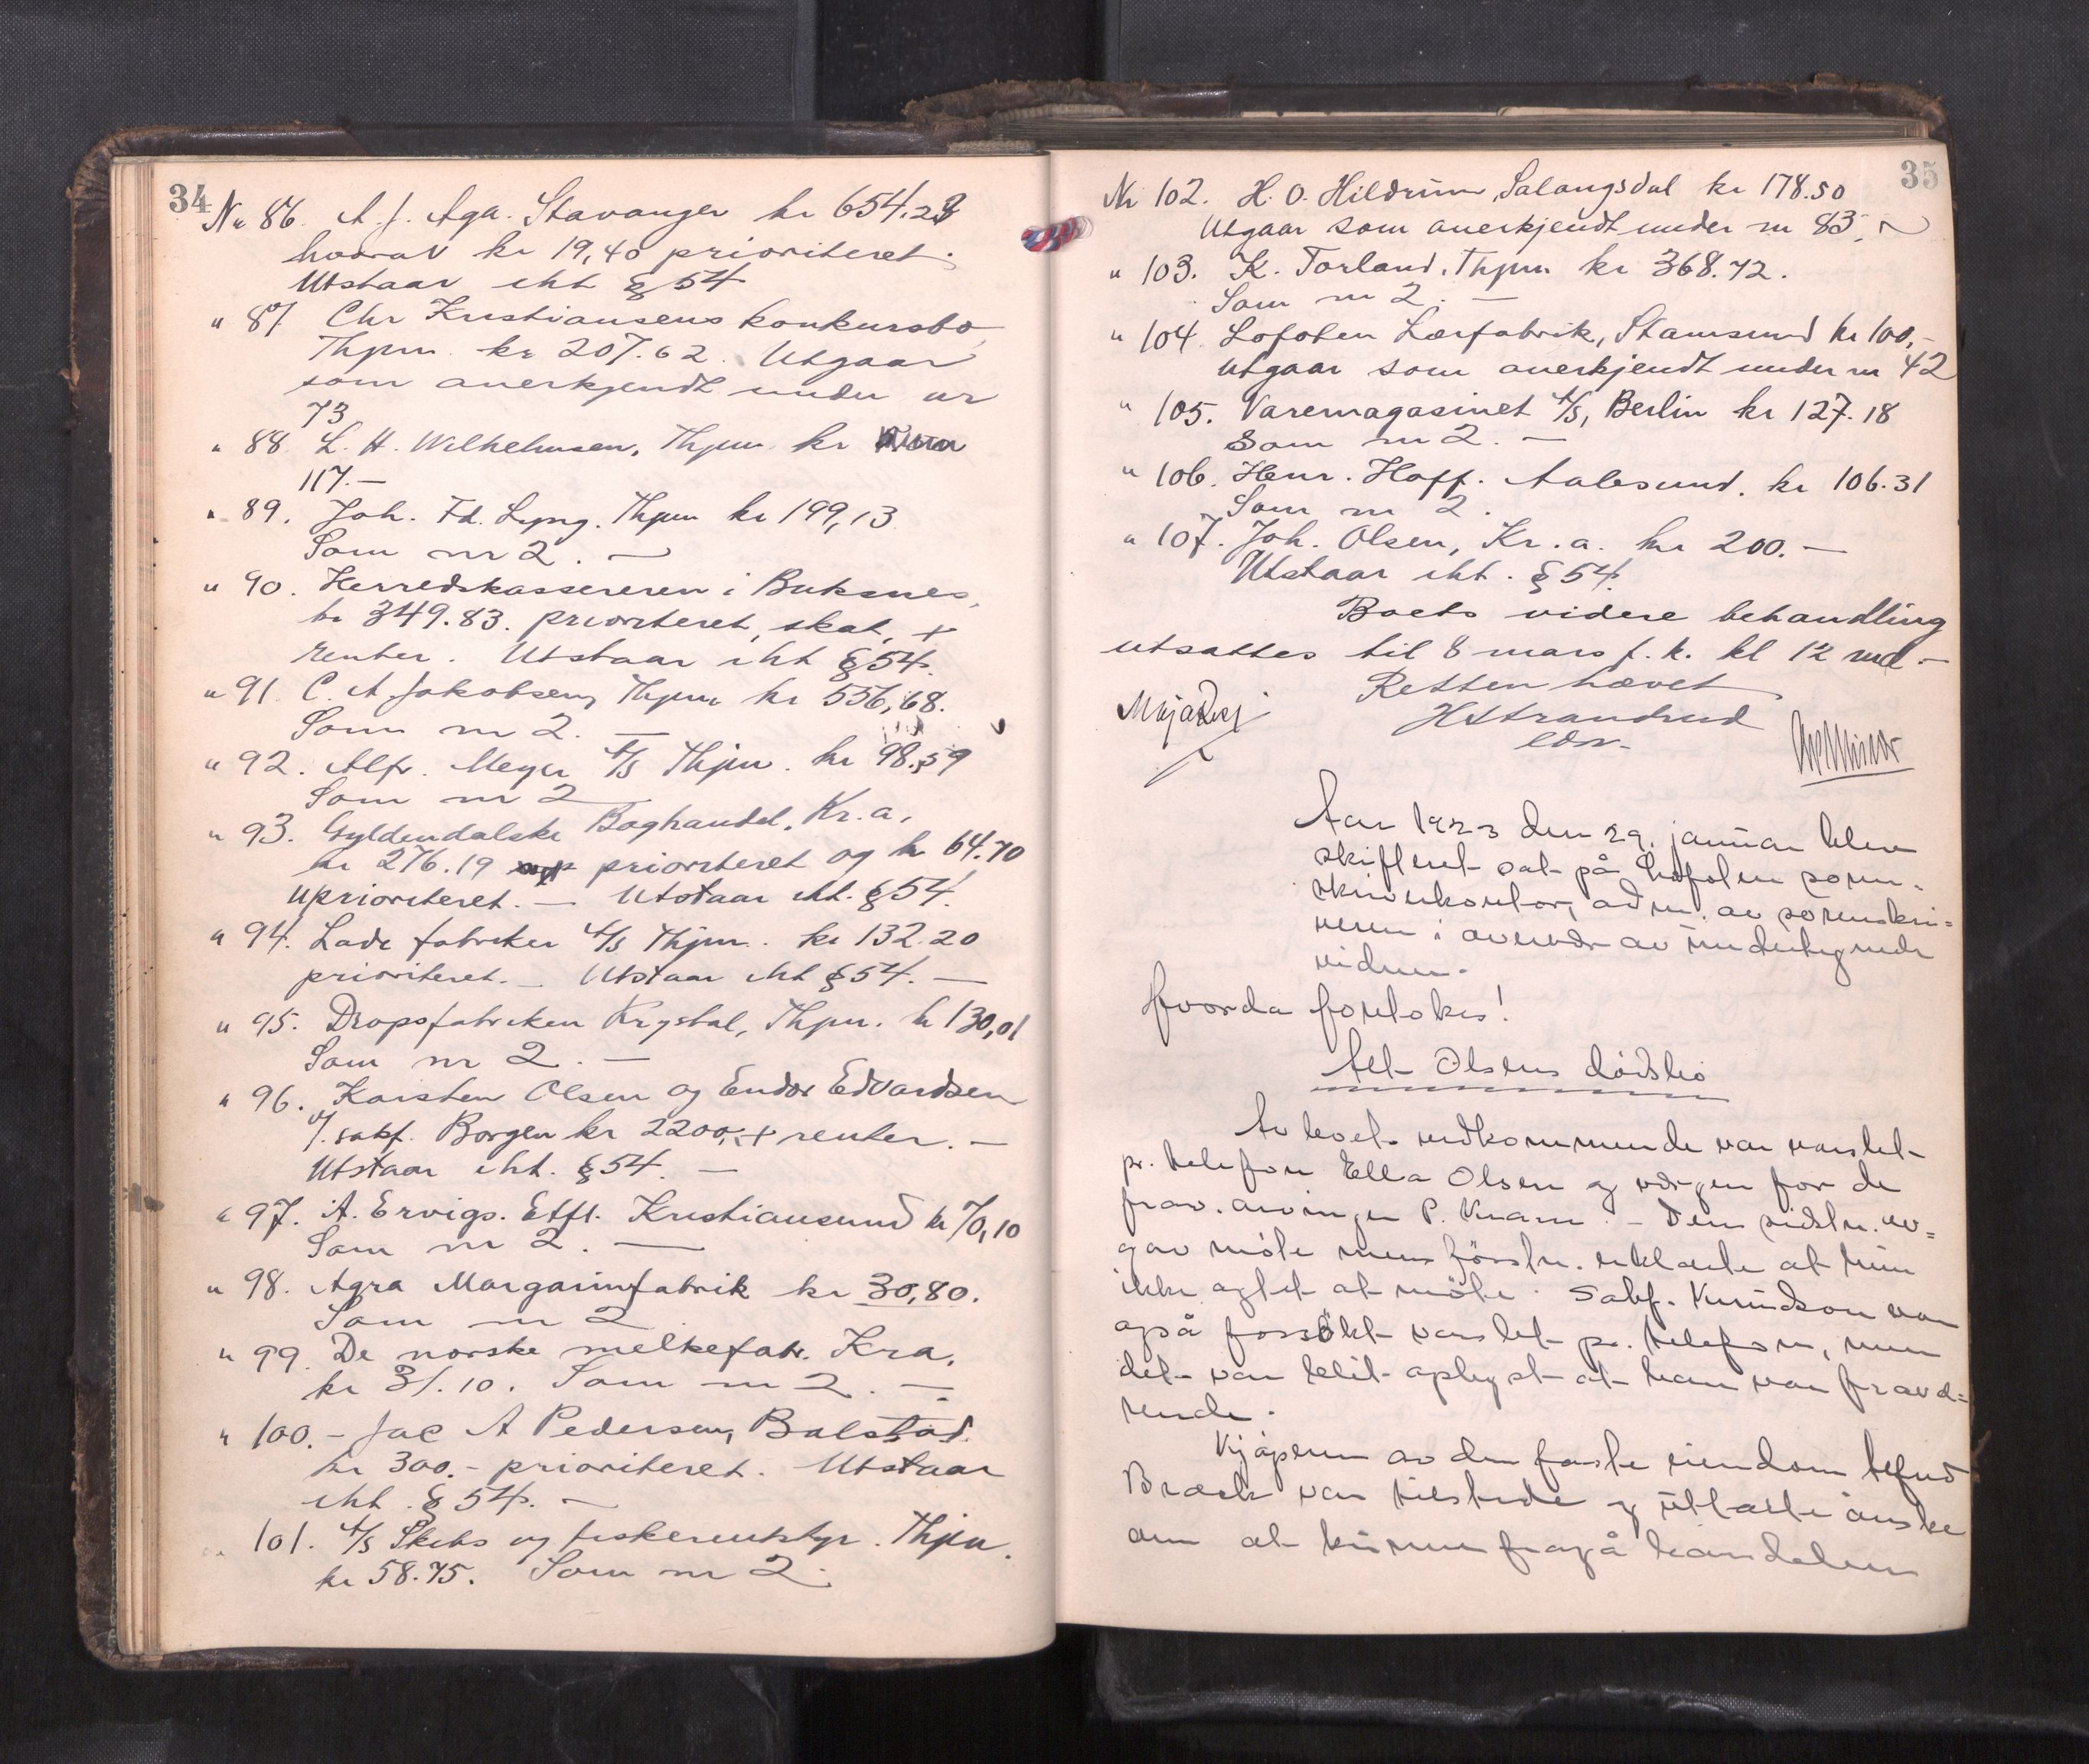 34
Nr 86. A. J. Aga. Stavanger kr 654.23
hvorav kr 19,40 prioriteret.
Utstaar iht § 54
" 87 Chr Kristiansens konkursbo
Thjem. kr 207.62. Utgaar
som anerkjendt under nr
73
" 88 L. H. Wilhelmsen, Thjem kr
117.—
" 89. Joh. Fd. Lyng. Thjem kr 199,13
Som nr 2. —
" 90. Herredskassereren i Buksnes,
kr 349.83. prioriteret, skat, +
renter. Utstaar iht § 54.
" 91 C. A. Jakobsen, Thjem kr 556,68.
Som nr 2. —
" 92. Alfr. Meyer A/S Thjem. kr 98.59
Som nr 2
" 93. Gyldendalske Boghandel, Kr.a.
kr 276.19 prioriteret og kr 64.70
uprioriteret. — Utstaar iht. § 54.
" 94. Lade fabriker A/S Thjem. kr 132.20
prioriteret. — Utstaar iht § 54. —
" 95. Dropsfabriken Krystal, Thjem. kr 130,01
Som nr 2. —
" 96. Karsten Olsen og Endor Edvardsen
v/. sakf. Borgen kr 2200,- + renter. —
Utstaar iht. § 54. —
" 97. A. Ervigs. Eftf. Kristiansund kr 70,10
Som nr 2. —
" 98. Agra Margarinfabrik kr 30,80.
Som nr 2
" 99. De norske melkefabr. Kra.
kr 31.10. Som nr 2. —
" 100. - Jac A Pedersen, Balstad.
kr 300.- prioriteret. Utstaar
iht. § 54. —
" 101. A/S Skibs og fiskeriutstyr. Thjem.
kr 58.75. Som nr 2.
35
Nr 102. H. O. Hildrum, Salangsdal kr 178.50
Utgaar som anerkjendt under nr 83.
" 103. K. Torland. Thjem kr 368.72.
Som nr 2. —
" 104 Lofoten Lærfabrik, Stamsund kr 100,-
Utgaar som anerkjendt under nr 42
" 105. Varemagasinet A/S, Berlin kr 127.18
Som nr 2. —
" 106. Henr. Hoff. Aalesund. kr 106.31
Som nr 2.
" 107. Joh. Olsen, Kr.a. kr 200.—
Utstaar iht. § 54.
Boets videre behandling
utsattes til 8 mars f. k. kl 12 md —
Retten hævet
HStrandrud
edsv.
Aar 1923 den 29. januar blev
skifteret sat på Lofoten soren-
skriverkontor, adm. av sorenskri=
veren i overvær av undertegnede
vidner.
Hvorda foretokes!
Alet Olsens dødsbo
Av boet vedkommende var varslet
pr. telefon Ella Olsen og værgen for de
frav. arvinger P. Kram. - Den sidstn. av=
gav møte mens förstn. erklærte at hun
ikke agtet at møte. Sakf. Knudson var
også forsökt varslet pr. telefon, men
det var blit oplyst at han var fravæ=
rende.
Kjøperen av den faste eiendom
Bræck var tilstede og uttalte önske
om at kunne fragå handelen